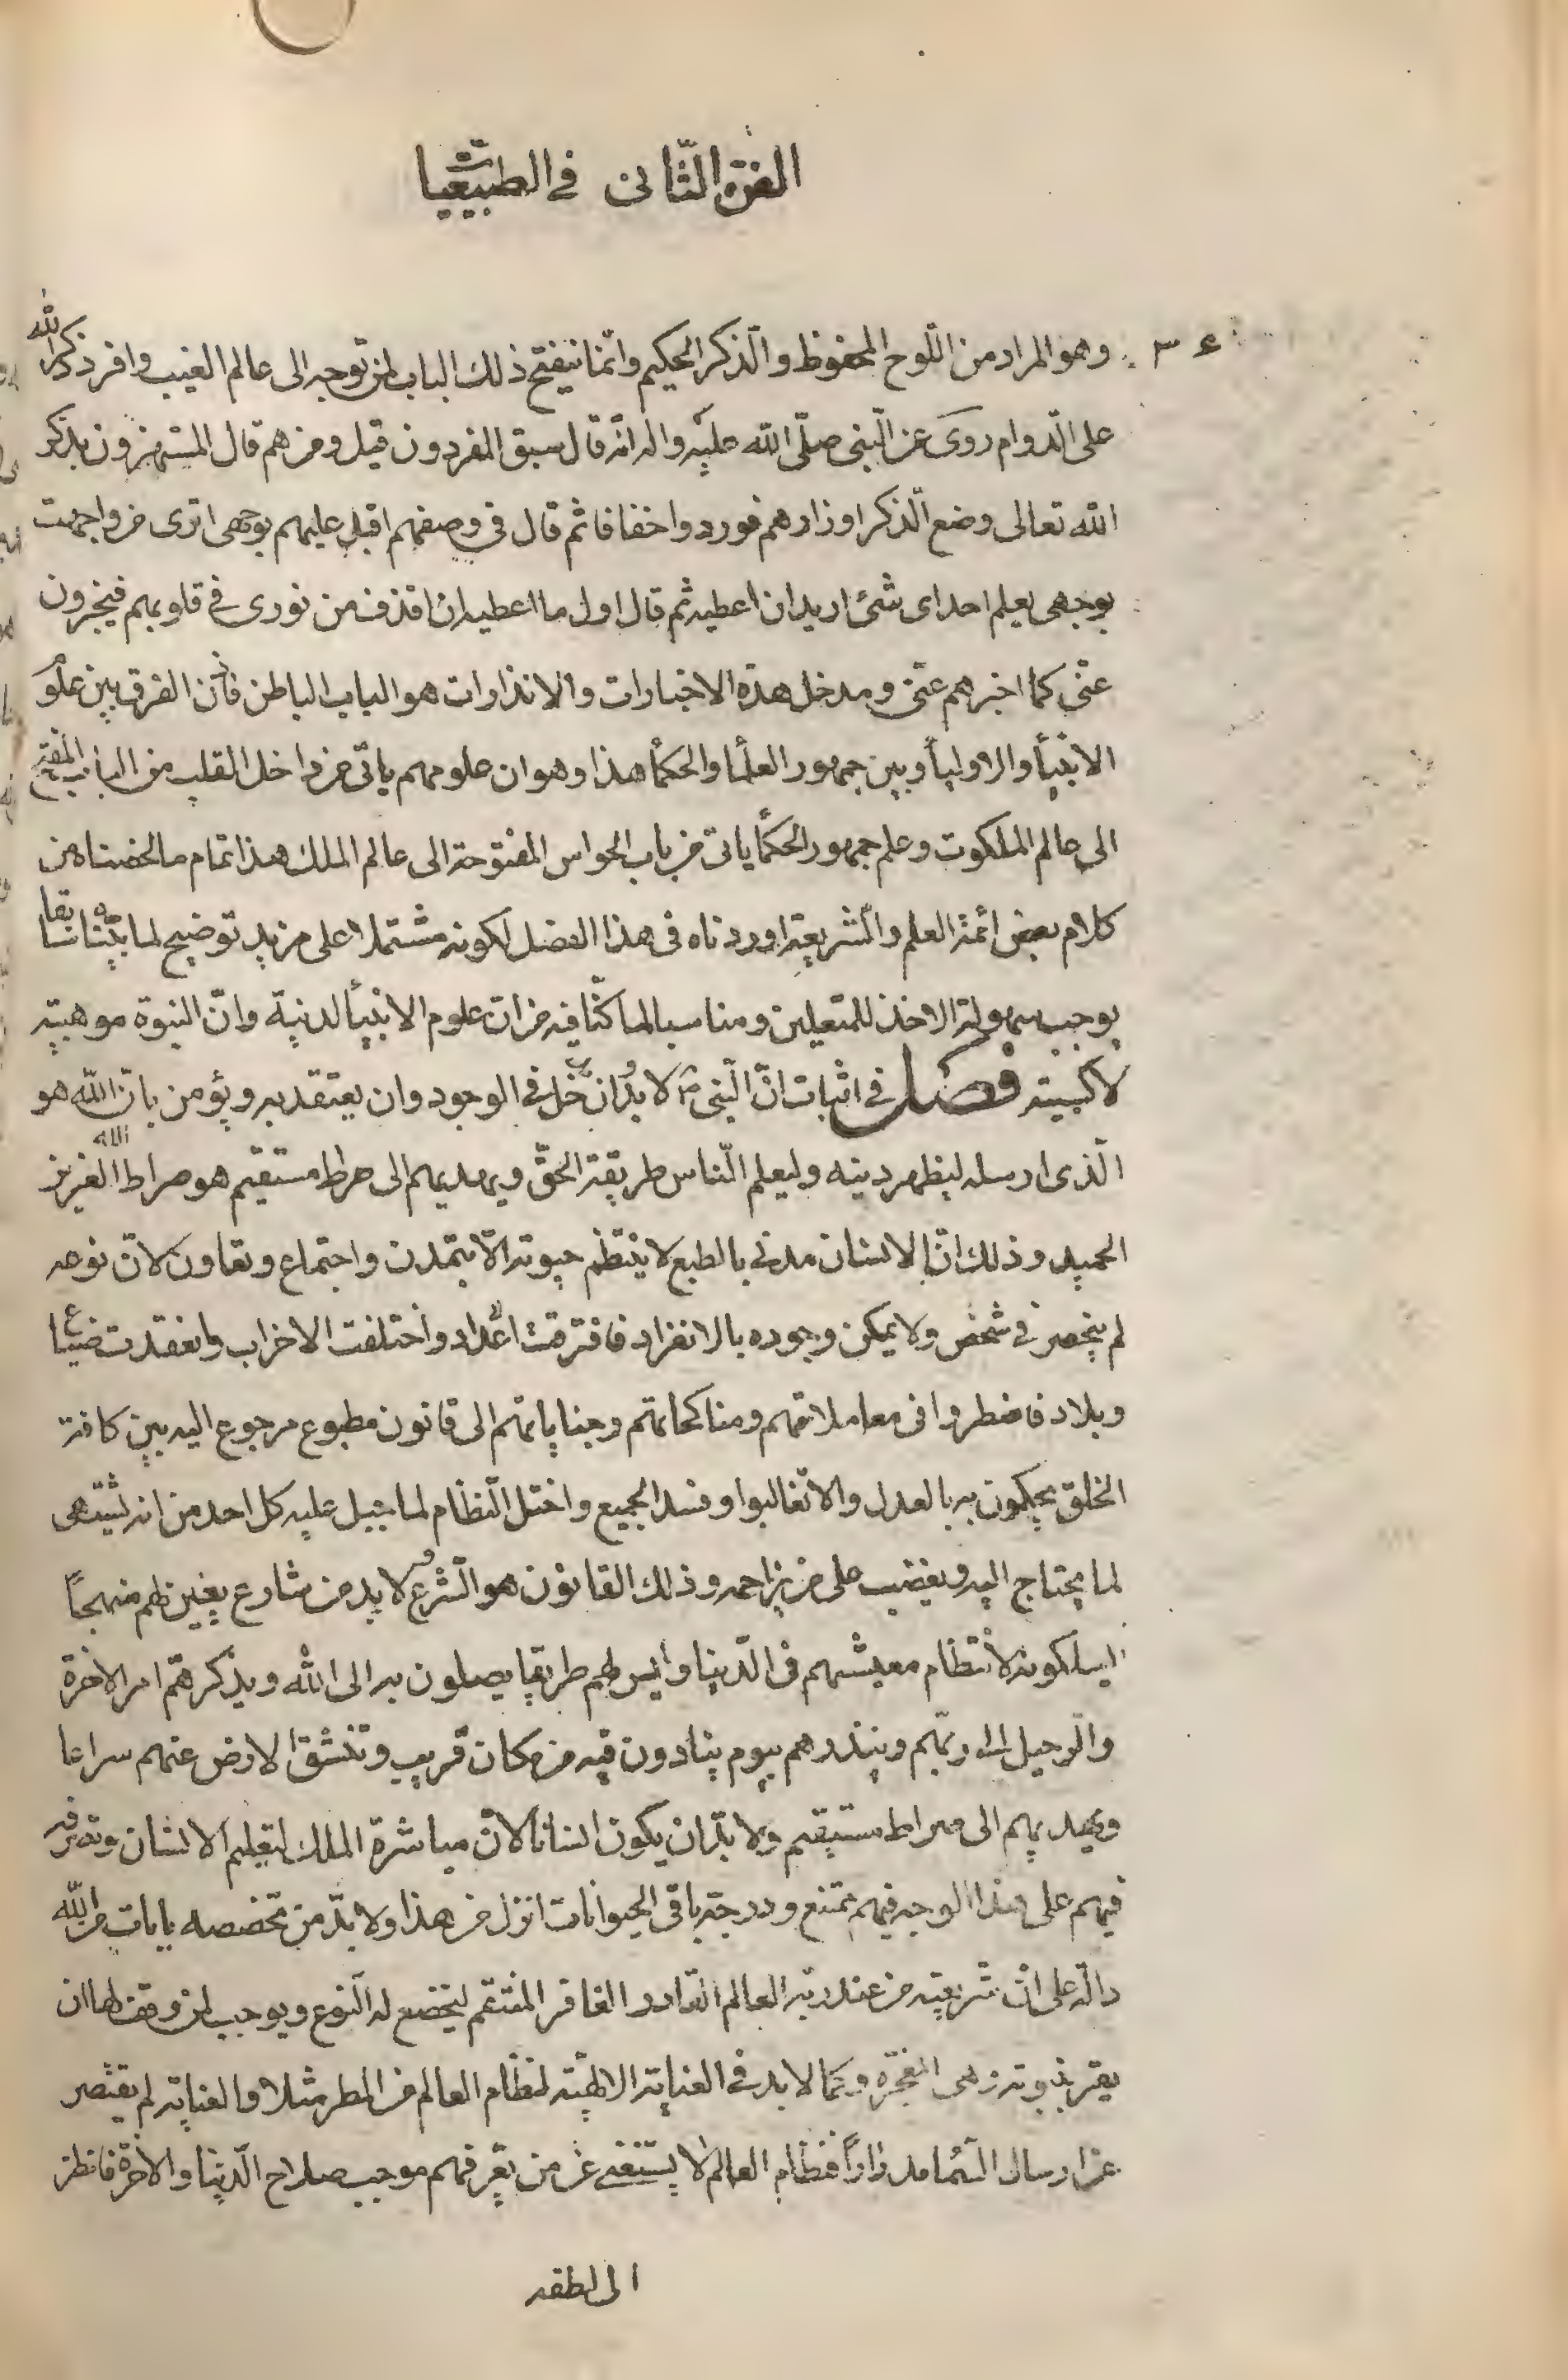 الفن الثّانى فى الطبيعيات
٣٤ وهو المراد من اللّوح المحفوظ والّذكر الحكيم وانّما ينفتح ذلك الباب لمن توجه الى عالم الغيب وافرد ذكر الله
على الّدوام روى عن الّنبى صلّى الله عليه واله انّه قال سبق المفردون قيل ومن هم قال المستهزون بذكر
الله تعالى وضع الّذكر اوزارهم فوردوا خفافا ثم قال فى وصفهم اقبل عليهم بوجهى اترى من واجهت
بوجهى يعلم احد اى شئ اريد ان اعطيه ثم قال اول ما اعطيه ان اقذف من نورى فى قلوبهم فيخبرون
عنّى كما اخبرهم عنّى ومدخل هذه الاخبارات والانذارات هو الباب الباطن فأذن الفرق بين علوم
الانبياء والاولياء وبين جمهور العلماء والحكماء هذا وهو ان علومهم ياتى من داخل القلب من الباب المفتح
الى عالم الملكوت وعلم جمهور الحكماء ياتى من باب الحواس المفتوحة الى عالم الملك هذا تمام ما لخصناه من
كلام بعض ائمّة العلم والّشريعة اوردناه فى هذا الفصل لكونه مشتملا على مزيد توضيح لما بيّناه سابقا
يوجب سهولة الاخذ للمتعلين ومناسبا لما كنّا فيه من انّ علوم الانبياء لدنيّة وانّ النبوة موهبية
لا كسبية فصل فى اثبات انّ الّنبى لا بدّ ان يدخل فى الوجود وان يعتقد به ويؤمن بانّ الله هو
الّذى ارسله ليظهر دينه وليعلم الّناس طريقة الحقّ ويهديهم الى صراط مستقيم هو صراط الله العزيز
الحميد وذلك انّ الانسان مدنى بالطبع لا ينتظم حيوته الّا بتمدن واجتماع وتعاون لانّ نوعه
لم ينحصر فى شخص ولا يمكن وجوده بالانفراد فافترقت اعداد واختلفت الاحزاب وانعقدت ضياع
وبلاد فاضطروا فى معاملاتهم ومناكحاتهم وجناياتهم الى قانون مطبوع مرجوع اليه بين كافة
الخلق يحكمون به بالعدل والا تغالبوا وفسد الجميع واختل الّنظام لما جبل عليه كل احد من انه يشتهى
لما يحتاج اليه ويغضب على من يزاحمه وذلك القانون هو الّشرع ولا بد من شارع يعين لهم منهجًا
ليسلكونه لانتظام معيشتهم فى الّدنيا وليس لهم طريقا يصلون به الى الله ويذكرهم امر الاخرة
والّرحيل الى ربّهم وينذرهم بيوم ينادون فيه من مكان قريب وتنشق الارض عنهم سراعا
ويهديهم الى صراط مستقيم ولا بدّ ان يكون انسانا لانّ مباشرة الملك لتعليم الانسان وتصرفه
فيهم على هذا الوجه فيهم ممتنع ودرجة باقى الحيوانات انزل من هذا ولا بدّ من تخصصه بايات من الله
دالّة على انّ شريعته من عند ربّه العالم القادر الغافر المنتقم ليخضع له الّنوع ويوجب لمن وقف لها ان
يقر بنبوته وهى المعجزه وكما لا بد فى العناية الالهيّة لنظام العالم من المطر مثلا والعناية لم يقتصر
عن ارسال الّسماء مدراراً فنظام العالم لا يستغنى عن من يعّرفهم موجب صلاح الّدنيا والاخرة فانظر
الى لطفه